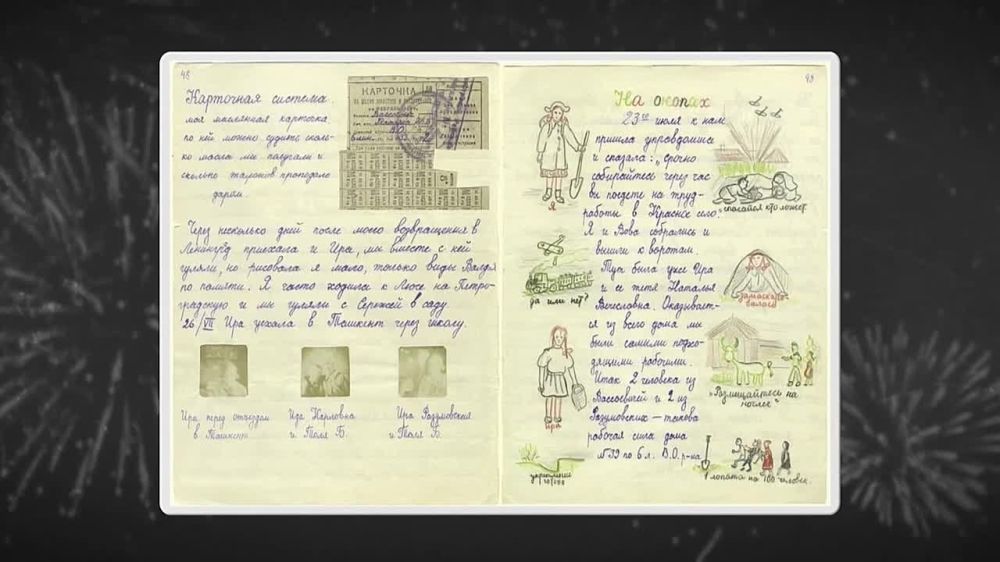 48
Карточная система.
моя масляная карточка,
по ней можно судить сколь-
ко масла мы получали и
сколько талонов пропадало
даром.
КАРТОЧКА
Через несколько дней после моего возвращения в
Ленинград приехала и Ира, мы вместе с ней
гуляли, но рисовала я мало, только виды Валдая
по памяти. Я часто ходила к Люсе на Петро-
градскую и мы гуляли с Сережей в саду.
26/VII Ира уехала в Ташкент через школу.
Ира перед отъездом
в Ташкент
Ида Карловна
и Толя Б.
Ира Разумовская
и Толя Б.
49
На окопах
23го июля к нам
пришла управдомша
и сказала: „срочно
собирайтесь через час
вы поедете на труд-
работы в Красное село.
Я и Вова собрались и
вышли к воротам.
Тут была уже Ира
и ее тетя Наталья
Вячеславна. Оказывает-
ся из всего дома мы
были самыми подхо-
дящими рабочими.
Итак 2 человека из
и 2 из
Разумовских — такова
рабочая сила дома
№39 по 6 л. В.О. р-на
Я
да или нет?
Ира
укрепление
„спасайся кто может"
„Размещайтесь на
ночлег"
лопата на 100 человек.